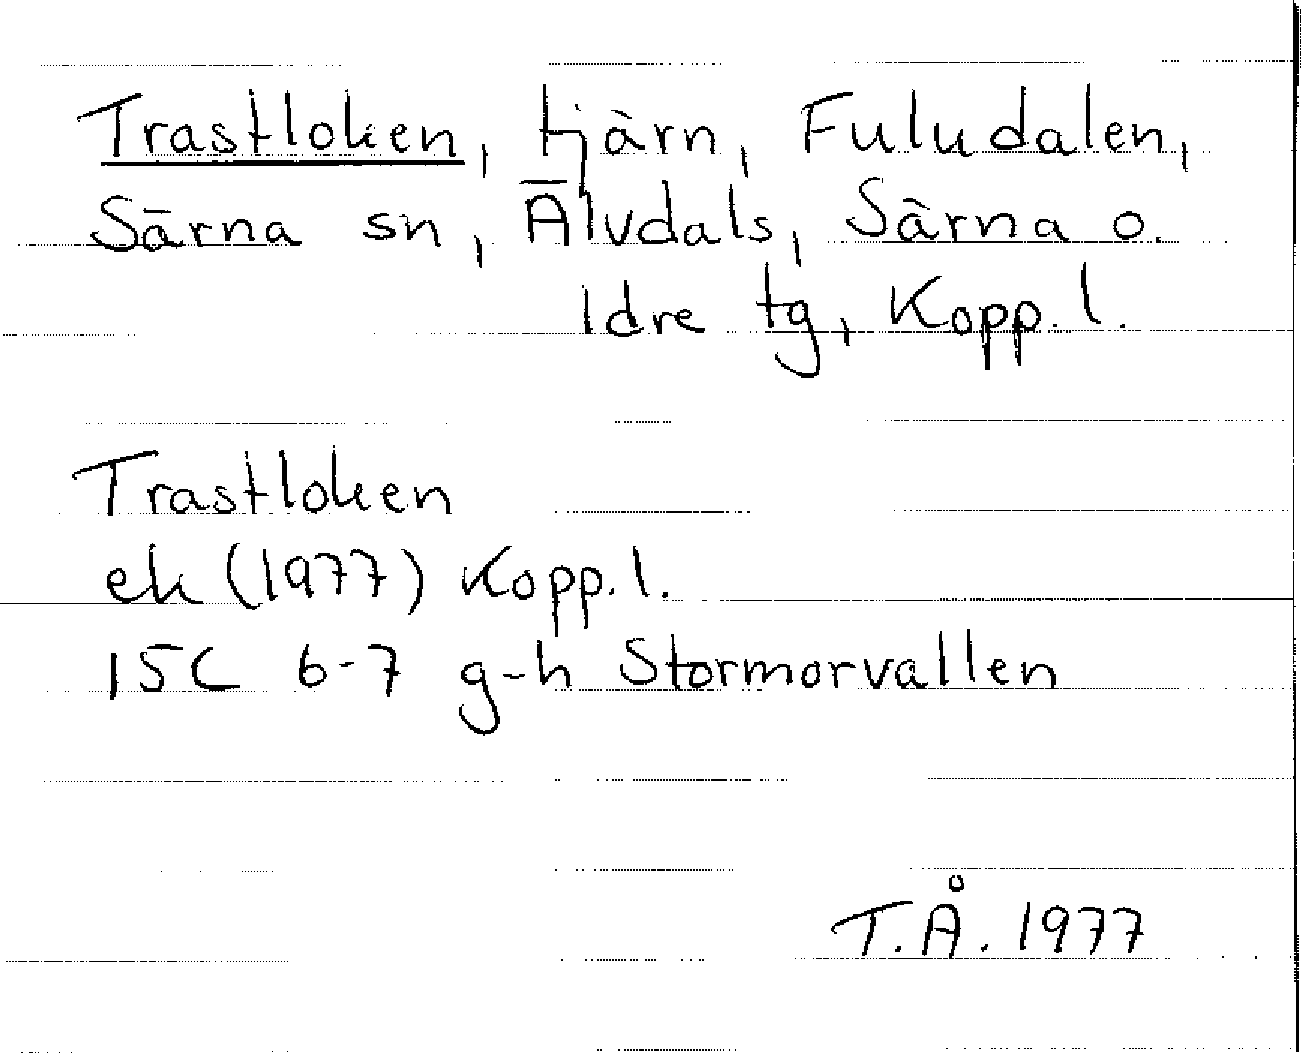 Trastloken, tjärn, Fuludalen,
Särna sn, Älvdals, Särna o.
Idre tg, Kopp. l.
Trastloken
ek (1977) Kopp. l.
15C 6-7 g-h Stormorvallen
T.Å. 1977